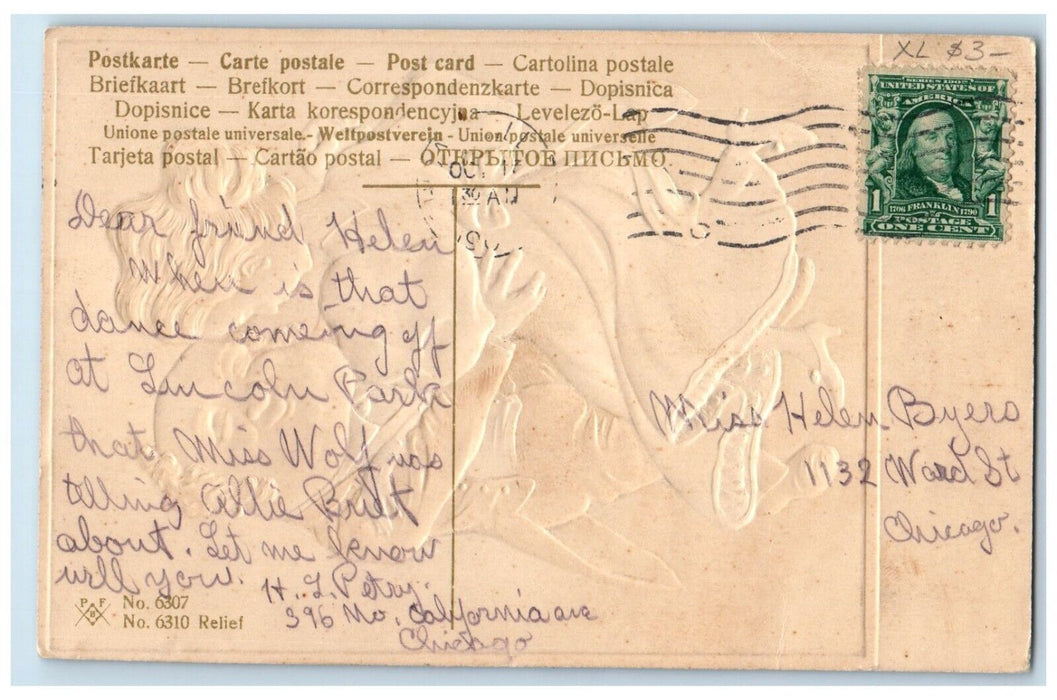 XL $3-
Postkarte — Carte postale — Post card — Cartolina postale
Briefkaart — Brefkort — Correspondenzkarte — Dopisnica
Dopisnice — Karta korespondencyjna — Levelező-Lap
Unione postale universale.- Weltpostverein - Union postale universelle
Tarjeta postal — Cartão postal — ОТКРЫТОЕ ПИСЬМО.
OCT
30 A
SERIES 1902
UNITED STATES OF
AMERICA
1706 FRANKLIN 1790
1 POSTAGE 1
ONE CENT
Dear friend Helen
When is that
dance comeing off
at Lincoln Park
that Miss Wolf was
telling Allie Britt
about. Let me know
will you.
H. L. Petry.
396 No. California ave
Chicago
Miss Helen Byers
1132 Ward St
Chicago.
P F B
No. 6307
No. 6310 Relief